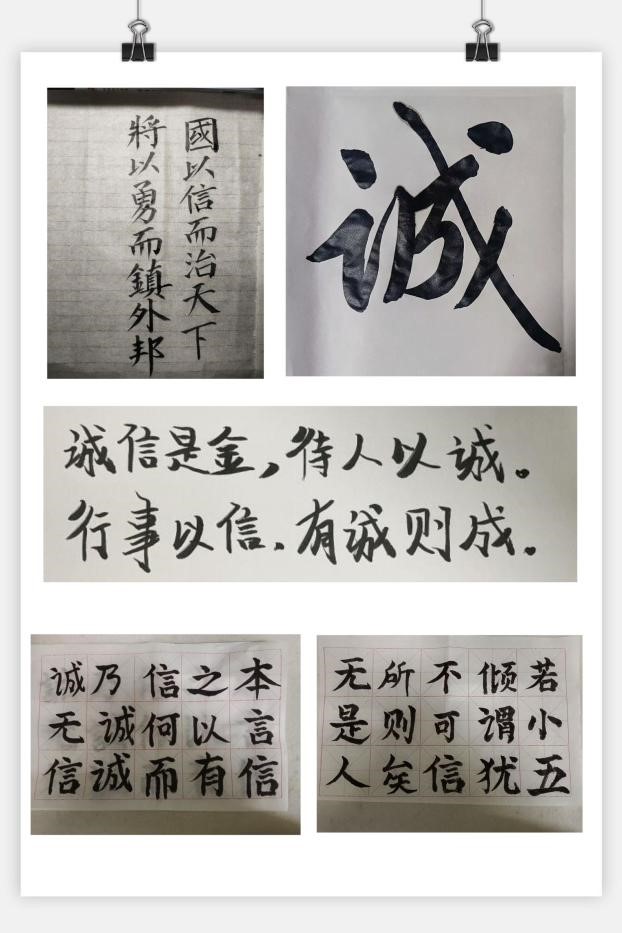 國以信而治天下
將以勇而鎮外邦
诚
诚信是金,待人以诚。
行事以信、有诚则成。
本言信
之以有
信何而
乃诚诚
诚无信
若小五
倾谓犹
不可信
所则矣
无是人